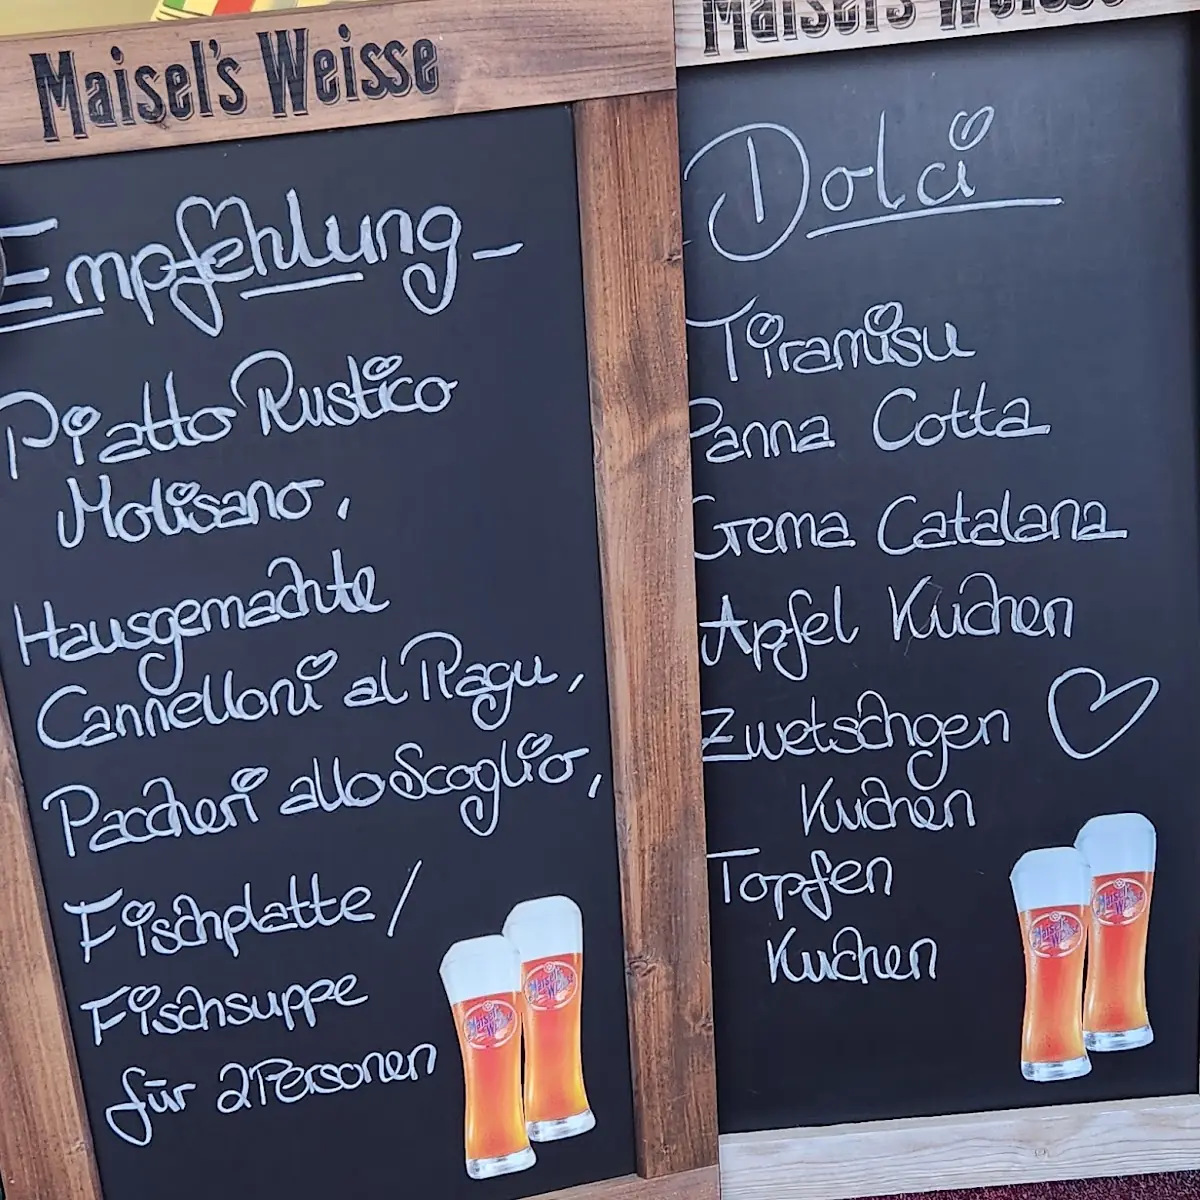 Maisel's Weisse
Empfehlung
Piatto Rustico
Molisano,
Hausgemachte
Cannelloni al Ragu,
Paccheri allo Scoglio,
Fischplatte /
Fischsuppe
für 2 Personen
Maisel's Weisse
Maisel's Weisse
Maisel's Weisse
Dolci
Tiramisu
Panna Cotta
Crema Catalana
Apfel Kuchen
Zwetschgen
Kuchen
Topfen
Kuchen
Maisel's Weisse
Maisel's Weisse